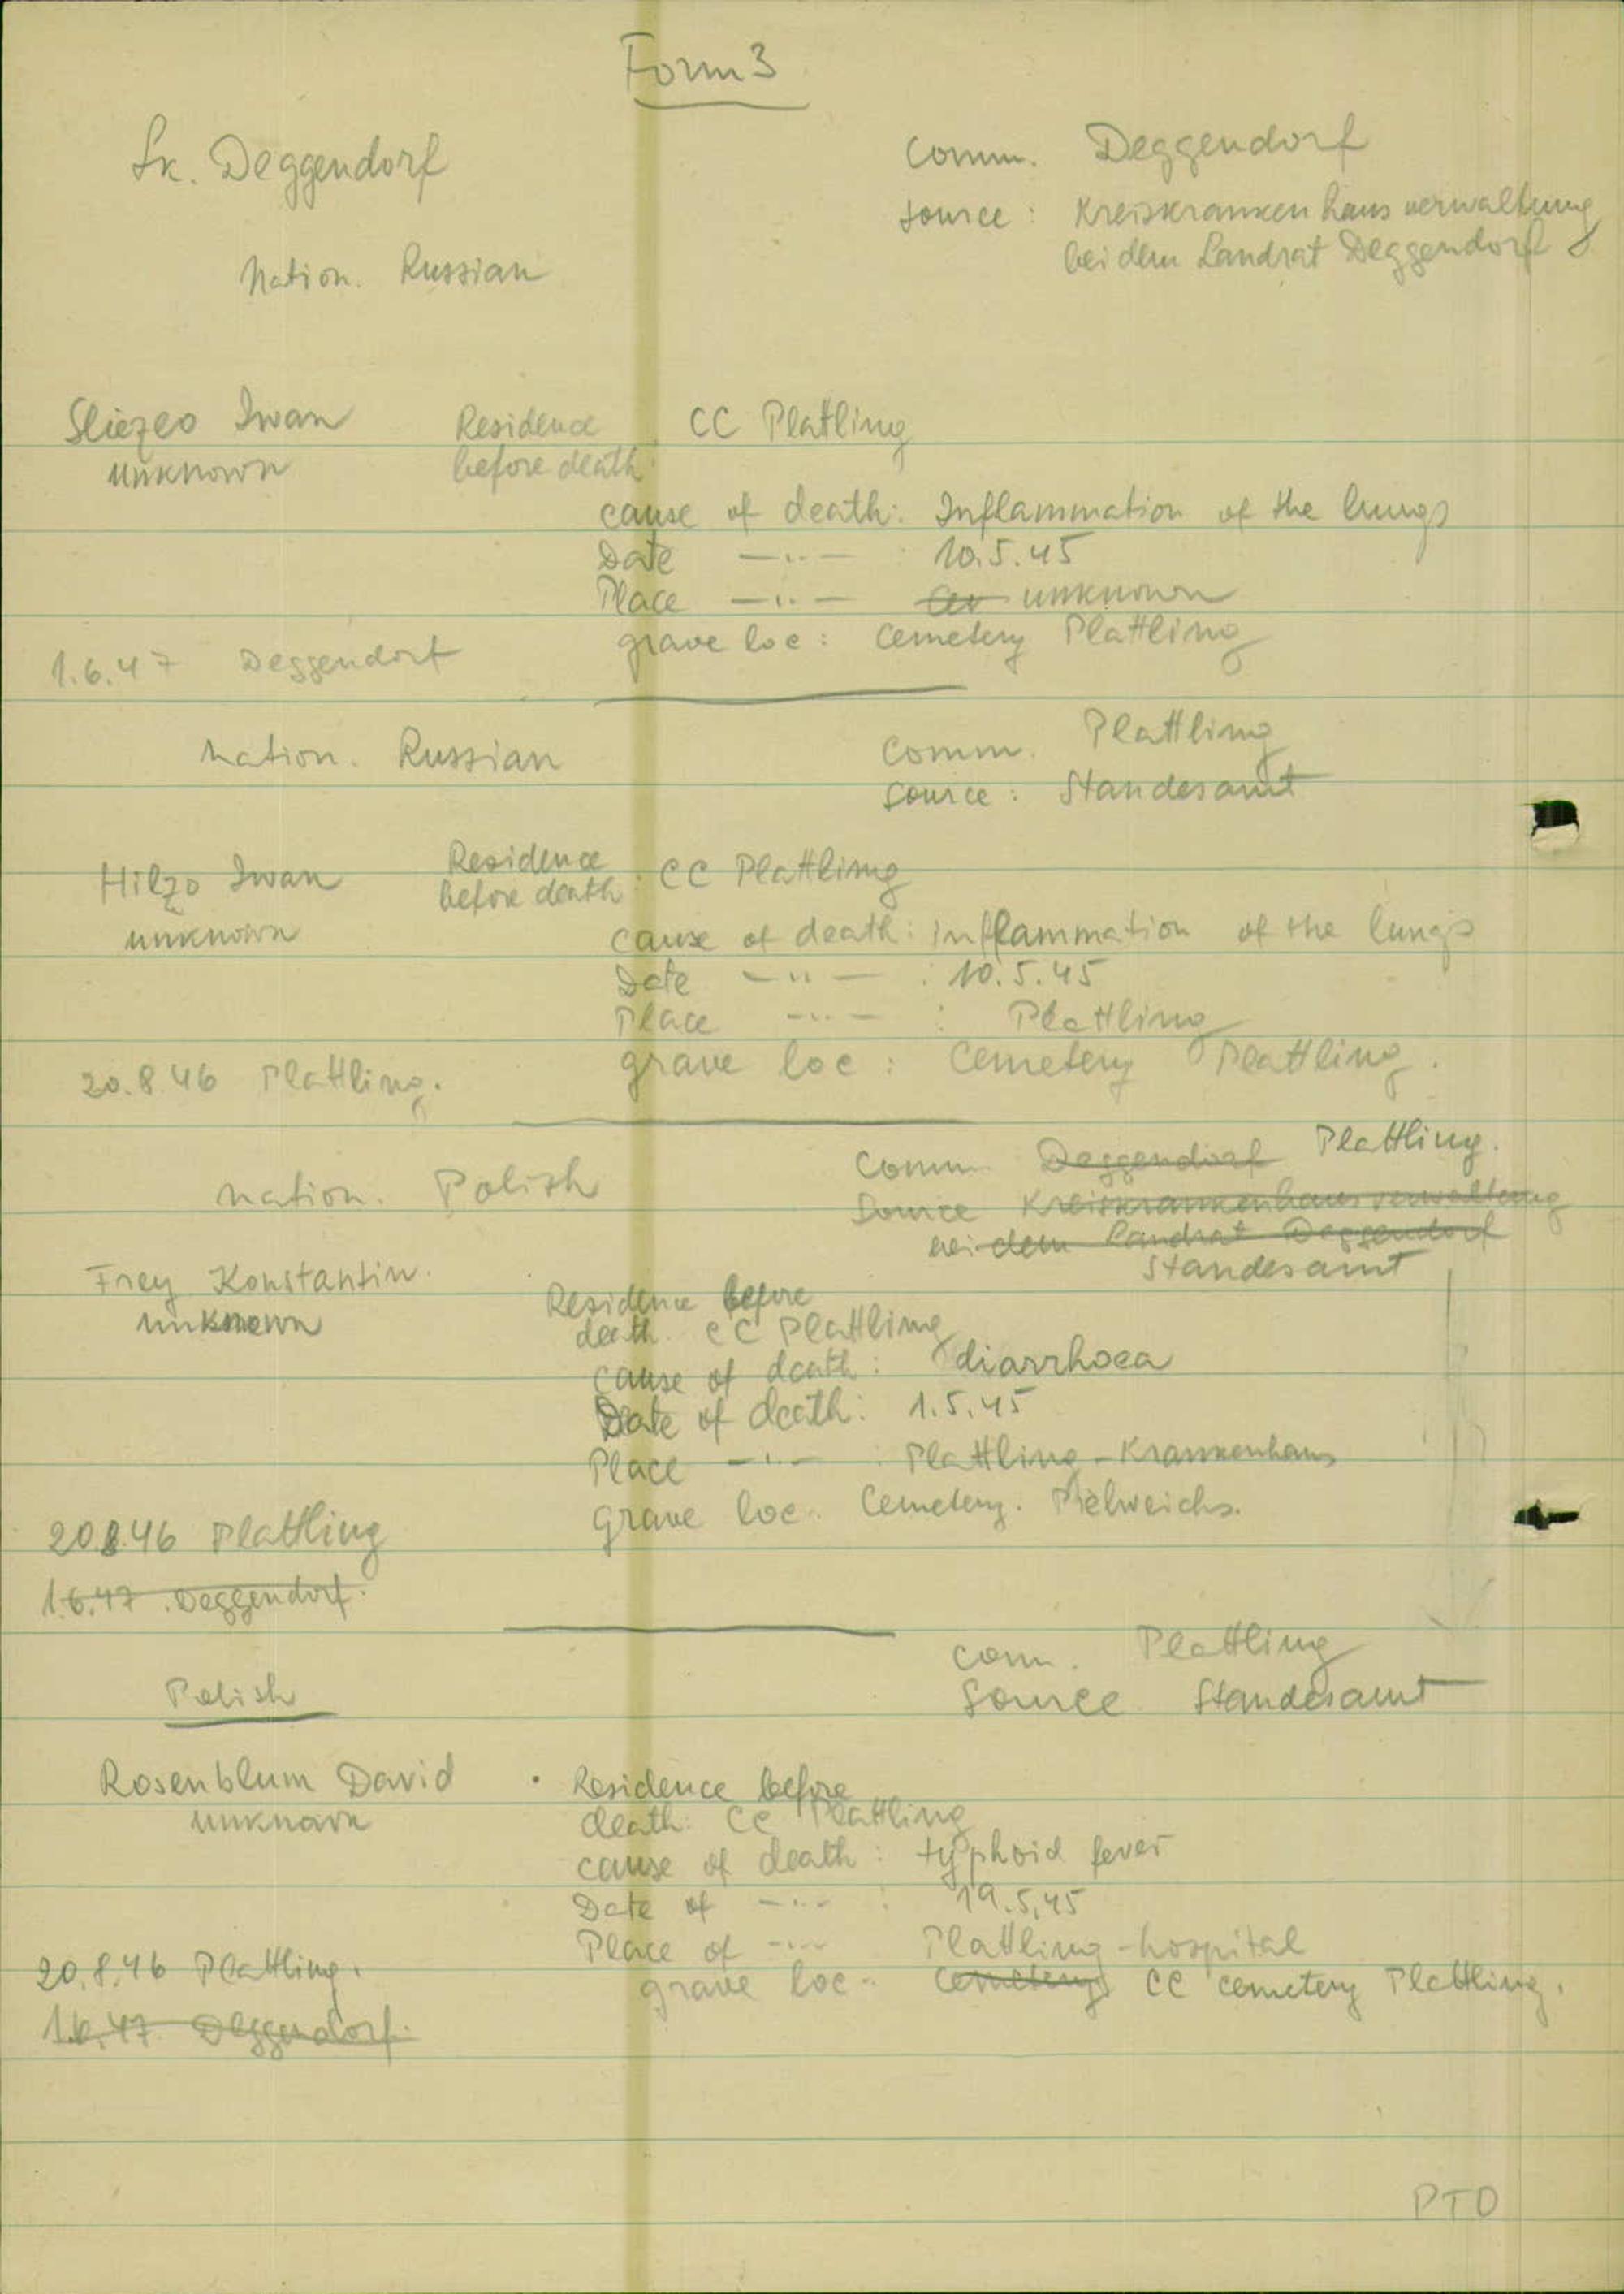 Form 3
Lk. Deggendorf
Comm. Deggendorf
Source: Kreiskrankenhausverwaltung
bei dem Landrat Deggendorf
Nation. Russian
Sliezeo Iwan
unknown
Residence CC Plattling
before death:
cause of death: Inflammation of the lungs
Date —"— : 10.5.45
Place —"— unknown
grave loc: Cemetery Plattling
1.6.47 Deggendorf
Nation. Russian
Comm. Plattling
Source: Standesamt
Hilzo Iwan
unknown
Residence
before death: CC Plattling
cause of death: inflammation of the lungs
Date —"— : 10.5.45
Place —"— : Plattling
grave loc: Cemetery Plattling.
20.8.46 Plattling.
Nation. Polish
Comm. Deggendorf Plattling.
Source Kreiskrankenhausverwaltung
bei dem Landrat Deggendorf
Standesamt
Frey Konstantin.
unknown
Residence before
death. CC Plattling
cause of death: diarrhoea
Date of death: 1.5.45
Place —"— : Plattling - Krankenhaus
Grave loc.. Cemetery. Pielweichs.
20.8.46 Plattling
1.6.47. Deggendorf.
Comm. Plattling
Source Standesamt
Polish
Rosenblum David
unknown
Residence before
death: CC Plattling
cause of death: typhoid fever
Date of —"— : 19.5.45
Place of —"— Plattling - hospital
grave loc.. Cemetery CC cemetery Plattling.
20.8.46 Plattling.
1.6.47 Deggendorf.
PTO